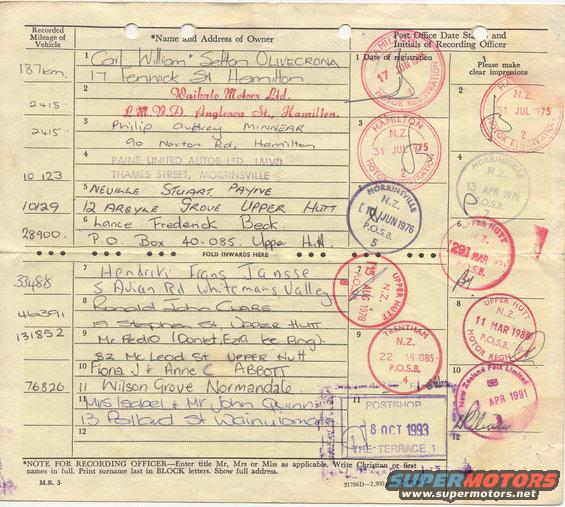 Recorded Mileage of Vehicle
*Name and Address of Owner
Post Office Date Stamp and Initials of Recording Officer
187km.
1 Carl William Sefton OLIVECRONA
17 Fenwick St Hamilton
1 Date of registration
HAMILTON
17 JUN
MOTOR REGISTRATION
2
Please make clear impressions
2415
2
Waikato Motors Ltd.
L.M.V.D. Anglesea St., Hamilton.
HAMILTON
N.Z.
31 JUL 1975
MOTOR REGISTRATION
2
2415
3
Philip Aubrey MINNEAR
90 Norton Rd, Hamilton
HAMILTON
N.Z.
31 JUL 1975
MOTOR REGISTRATION
2
10 123
4
PAINE UNITED AUTOS LTD. LMVD
THAMES STREET, MORRINSVILLE
4
MORRINSVILLE
N.Z.
13 APR 1976
P.O.S.B.
2
10129
5 NEVILLE STUART PAYNE
12 ARGYLE GROVE UPPER HUTT
MORRINSVILLE
N.Z.
JUN 1976
P.O.S.B.
5
28900.
6 Lance Frederick Beck.
P.O. Box 40-085. Upper Hutt.
6
UPPER HUTT
N.Z.
29 MAR
P.O.S.B.
FOLD INWARDS HERE
33488
7
Hendrik Frans Jansse
5 Avian Rd Whitemans Valley
N.Z.
15 AUG 1978
P.O.S.B.
UPPER HUTT
46391
8
Ronald John CLARE
19 Stephen St. UPPER HUTT
8
UPPER HUTT
N.Z.
11 MAR 1980
P.O.S.B.
MOTOR REGN
131852
9
Mr Pedio
82 McLeod St UPPER Hutt
TRENTHAM
N.Z.
22 1985
P.O.S.B.
4
76826
10 Fiona J & Anne C ABBOTT
11 Wilson Grove Normandale
10
New Zealand Post Limited
APR 1991
11
Mrs Isabel & Mr John Quinn
13 Pollard St Wainuiomata
POSTSHOP
8 OCT 1993
THE TERRACE 1
12
12
*NOTE FOR RECORDING OFFICER—Enter title Mr, Mrs or Miss as applicable. Write Christian or first
names in full. Print surname last in BLOCK letters. Show full address.
M.R. 3
31786D—2,300
Hosted on
SUPERMOTORS
www.supermotors.net